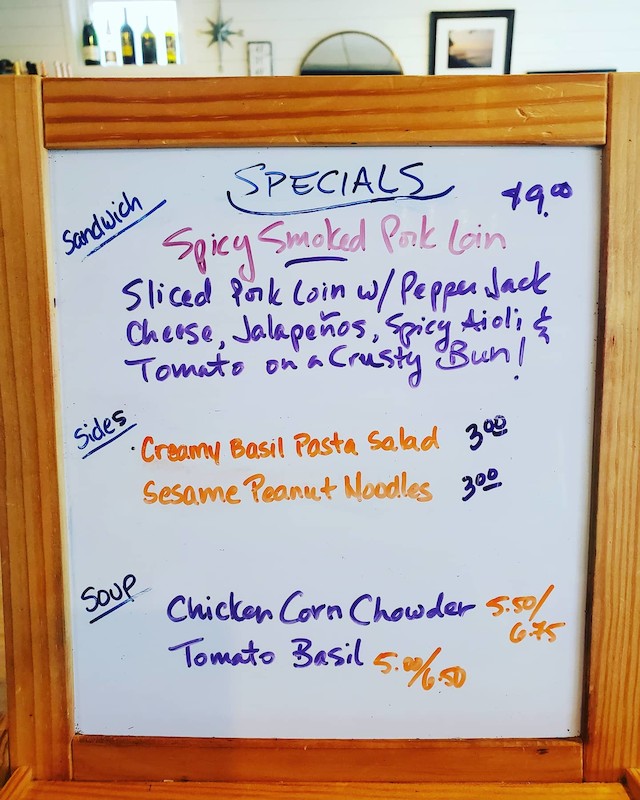 SPECIALS
Sandwich
$9.00
Spicy Smoked Pork Loin
Sliced Pork Loin w/ Pepper Jack
Cheese, Jalapeños, Spicy Aioli &
Tomato on a Crusty Bun!
Sides
Creamy Basil Pasta Salad 3.00
Sesame Peanut Noodles 3.00
Soup
Chicken Corn Chowder 5.50/
6.75
Tomato Basil 5.00/6.50